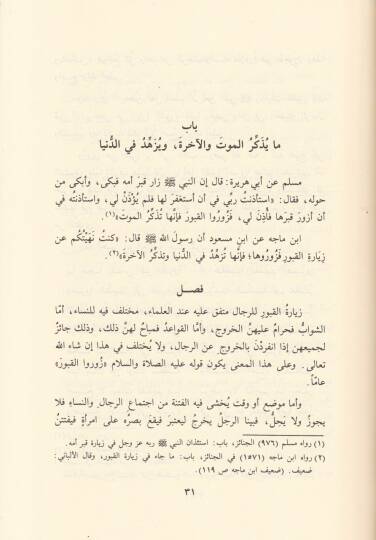 باب
ما يُذَكِّرُ الموتَ والآخرةَ، ويُزَهِّدُ في الدُّنيا
مسلم عن أبي هريرة: قال إن النبي ﷺ زار قبرَ أمه فبكى، وأبكى من
حوله، فقال: «استأذنتُ ربِّي في أن أستغفرَ لها فلم يُؤْذَنْ لي، واستأذنتُه في
أن أزورَ قبرَها فأَذِن لي، فَزُورُوا القبورَ فإنَّها تُذكِّرُ الموت»(١).
ابن ماجه عن ابنِ مسعود أن رسولَ الله ﷺ قال: «كنتُ نَهَيْتُكُم عن
زِيَارةِ القبورِ فَزُورُوها؛ فإنَّها تُزهِّدُ في الدُّنيا وتذكِّرُ الآخرةَ»(٢).
فصل
زيارةُ القبورِ للرجال متفق عليه عند العلماء، مختلف فيه للنساء، أمَّا
الشوابُّ فحرامٌ عليهنَّ الخروج، وأمَّا القواعدُ فمباحٌ لهنَّ ذلك، وذلك جائزٌ
لجميعهن إذا انفردْنَ بالخروجِ عن الرجال، ولا يُختلف في هذا إن شاء الله
تعالى. وعلى هذا المعنى يكون قوله عليه الصلاة والسلام «زُوروا القبورَ»
عامّاً.
وأما موضع أو وقت يُخْشى فيه الفتنة من اجتماعِ الرجالِ والنساءِ فلا
يجوزُ ولا يَحلُّ، فبينا الرجلُ يخرجُ ليعتبرَ فيقعَ بصرُه على امرأةٍ فيفتتنُ
(١) رواه مسلم (٩٧٦) الجنائز، باب: استئذان النبي ﷺ ربه عز وجل في زيارة قبر أمه.
(٢) رواه ابن ماجه (١٥٧١) في الجنائز، باب: ما جاء في زيارة القبور، وقال الألباني:
ضعيف. (ضعيف ابن ماجه ص ١١٩).
٣١